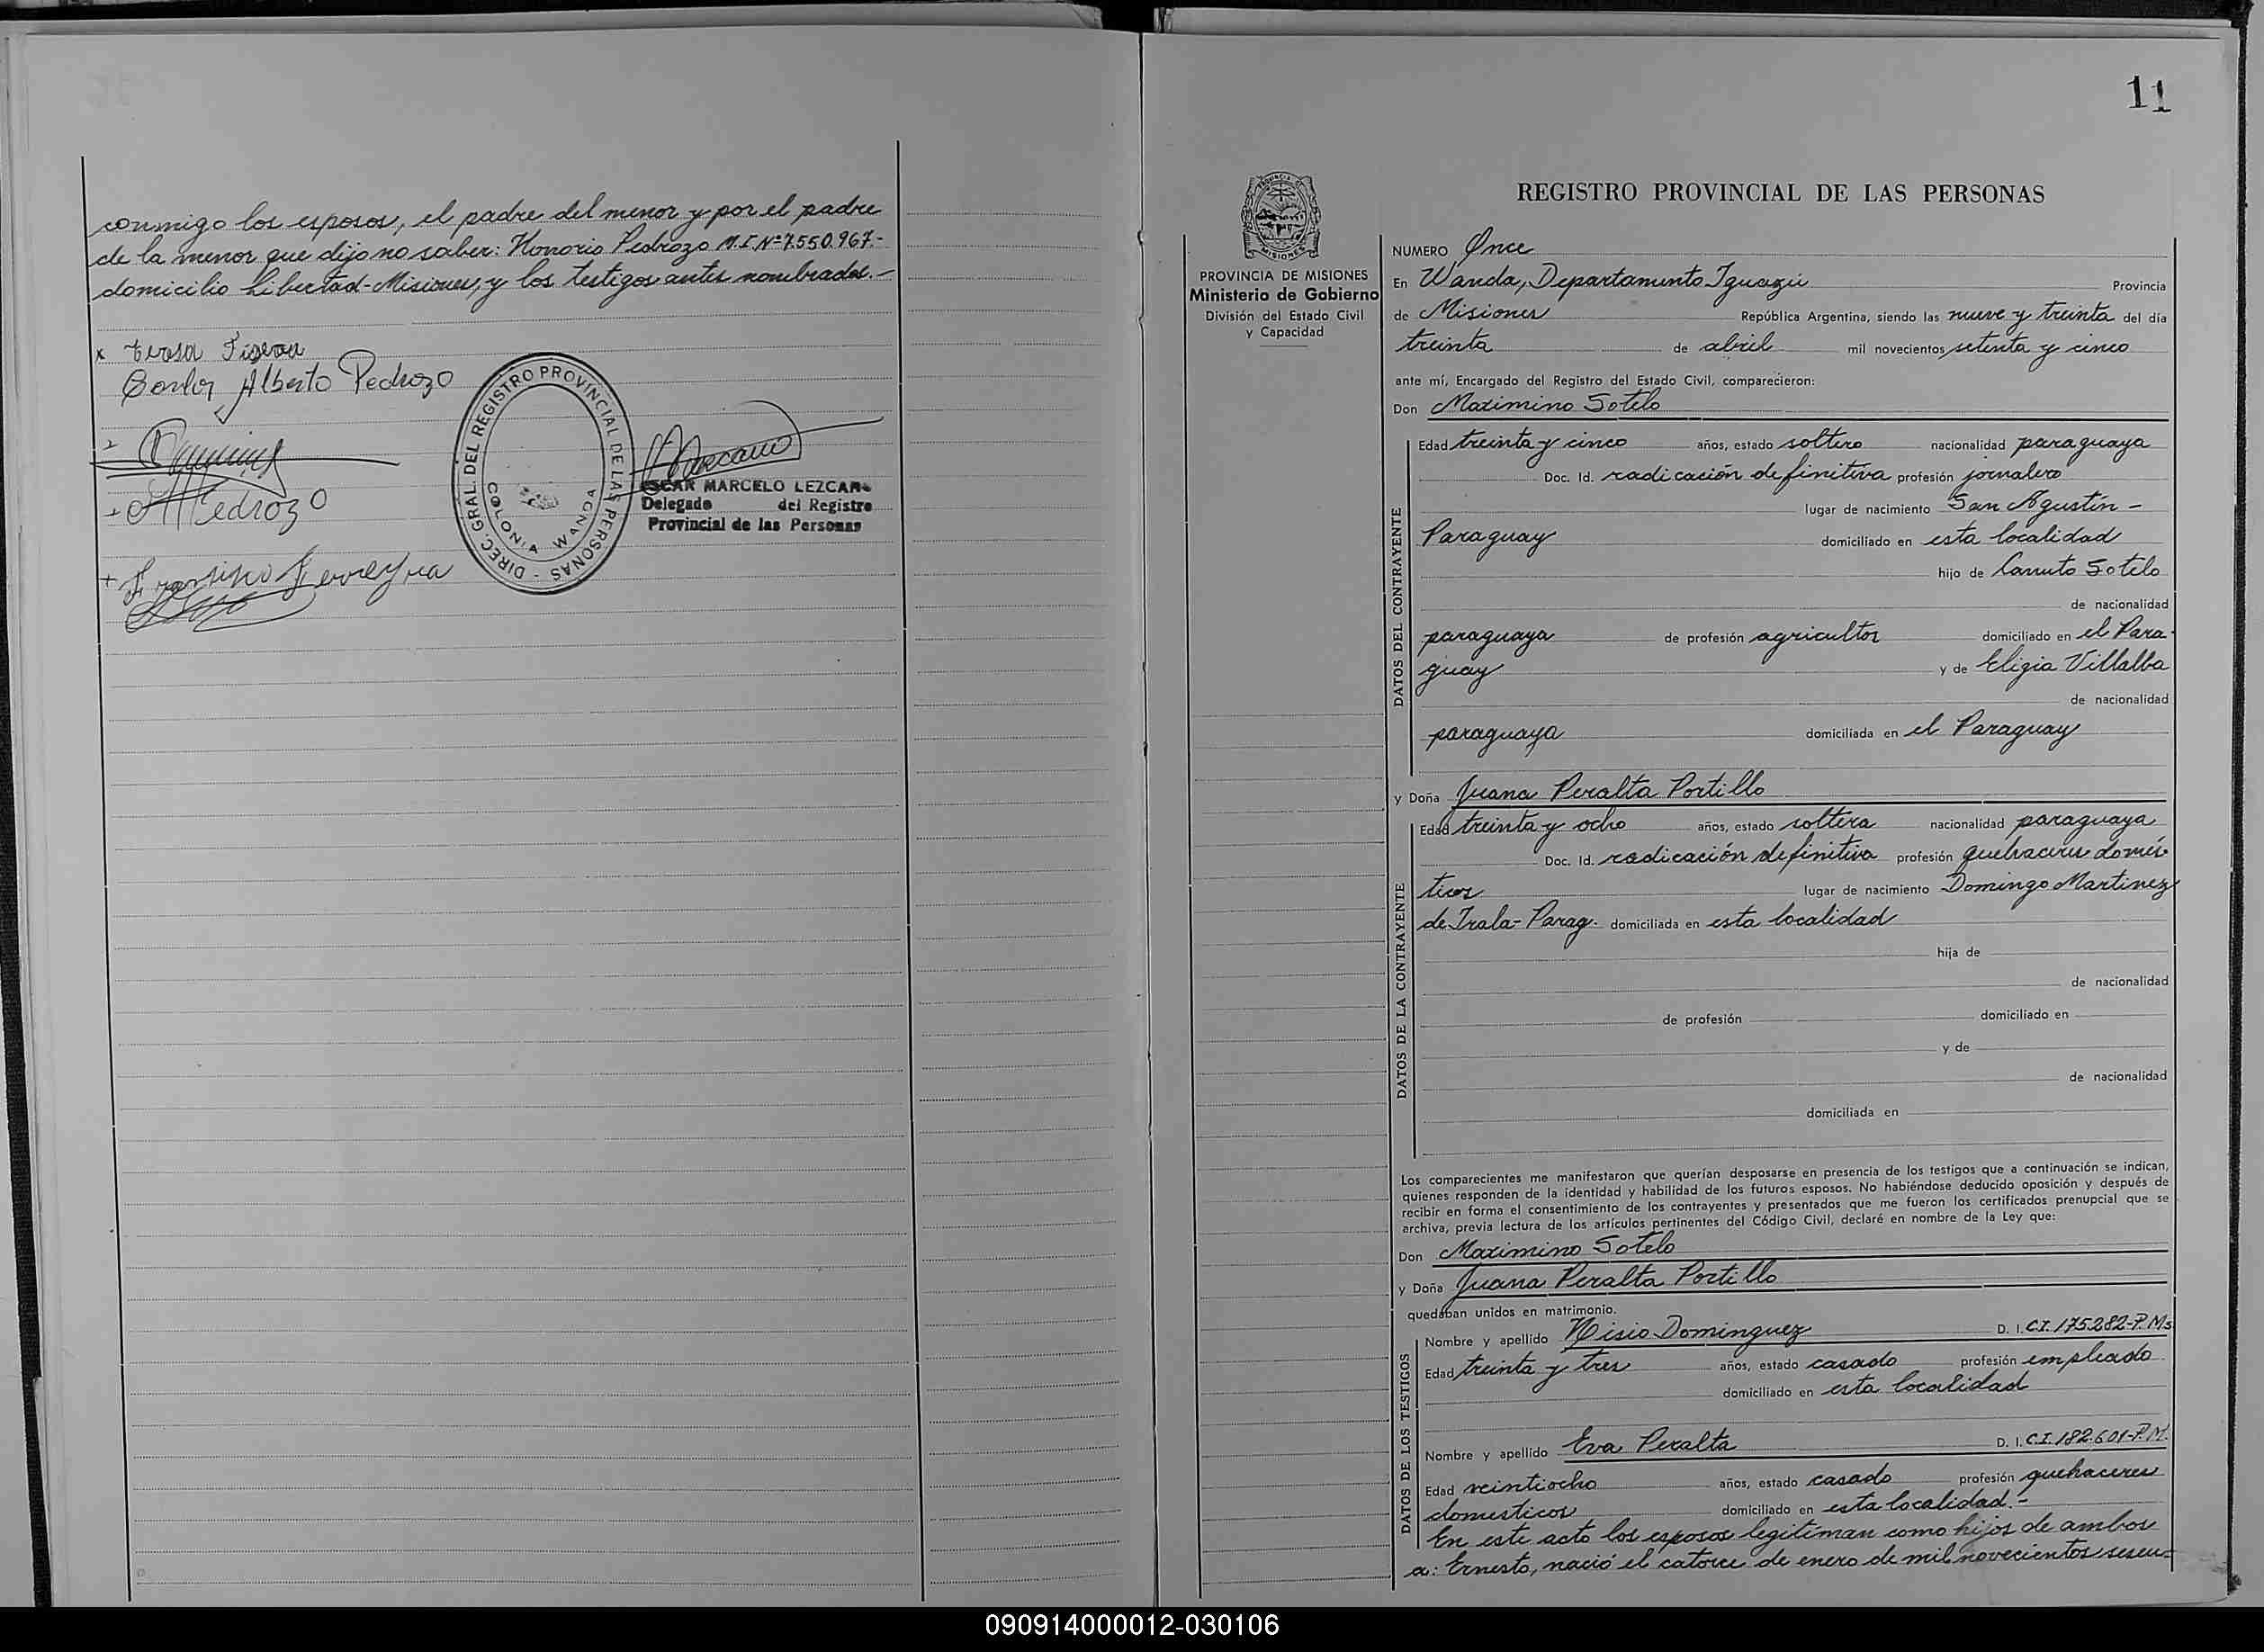 conmigo los esposos, el padre del menor y por el padre
de la menor que dijo no saber: Honorio Pedrozo M.I Nº 7.550.967.-
domicilio Libertad-Misiones, y los testigos antes nombrados.-
x Teresa
Carlos Alberto Pedrozo
Pedrozo
Ferreyra
DIREC. GRAL. DEL REGISTRO PROVINCIAL DE LAS PERSONAS -
COLONIA WANDA
OSCAR MARCELO LEZCANO
Delegado del Registro
Provincial de las Personas
11
PROVINCIA DE MISIONES
Ministerio de Gobierno
División del Estado Civil
y Capacidad
REGISTRO PROVINCIAL DE LAS PERSONAS
NUMERO Once
En Wanda, Departamento Iguazú Provincia
de Misiones República Argentina, siendo las nueve y treinta del día
treinta de abril mil novecientos setenta y cinco
ante mí, Encargado del Registro del Estado Civil, comparecieron:
Don Maximino Sotelo
DATOS DEL CONTRAYENTE
Edad treinta y cinco años, estado soltero nacionalidad paraguaya
Doc. Id. radicación definitiva profesión jornalero
lugar de nacimiento San Agustín -
Paraguay domiciliado en esta localidad
hijo de Canuto Sotelo
de nacionalidad
paraguaya de profesión agricultor domiciliado en el Para-
guay y de Eligia Villalba
de nacionalidad
paraguaya domiciliada en el Paraguay
y Doña Juana Peralta Portillo
DATOS DE LA CONTRAYENTE
Edad treinta y ocho años, estado soltera nacionalidad paraguaya
Doc. Id. radicación definitiva profesión quehaceres domés-
ticos lugar de nacimiento Domingo Martinez
de Irala-Parag. domiciliada en esta localidad
hija de
de nacionalidad
de profesión domiciliado en
y de
de nacionalidad
domiciliada en
Los comparecientes me manifestaron que querían desposarse en presencia de los testigos que a continuación se indican,
quienes responden de la identidad y habilidad de los futuros esposos. No habiéndose deducido oposición y después de
recibir en forma el consentimiento de los contrayentes y presentados que me fueron los certificados prenupcial que se
archiva, previa lectura de los artículos pertinentes del Código Civil, declaré en nombre de la Ley que:
Don Maximino Sotelo
y Doña Juana Peralta Portillo
quedaban unidos en matrimonio.
DATOS DE LOS TESTIGOS
Nombre y apellido Nisio Dominguez D. I. C.I. 175.282-P.Ms
Edad treinta y tres años, estado casado profesión empleado
domiciliado en esta localidad
Nombre y apellido Eva Peralta D. I. C.I. 182.601-P.M.
Edad veintiocho años, estado casado profesión quehaceres
domesticos domiciliado en esta localidad.-
En este acto los esposos legitiman como hijos de ambos
a: Ernesto, nació el catorce de enero de mil novecientos sesen-
090914000012-030106